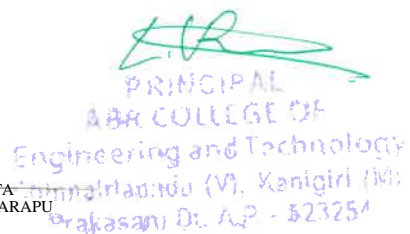 PRINCIPAL
ABR COLLEGE OF
Engineering and Technology
(V), Kanigiri (M)
Prakasam Dt. A.P - 523254
TA
ARAPU